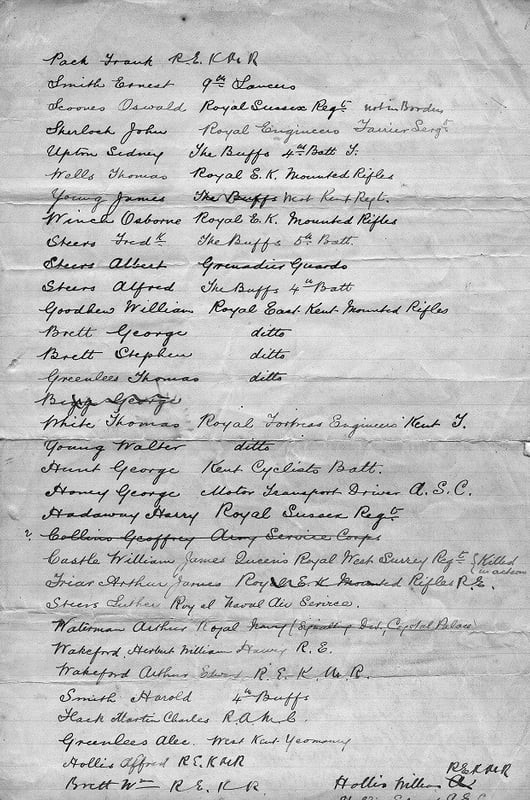 Pack Frank R.E.K.M.R
Smith Ernest 9th Lancers
Scoones Oswald Royal Sussex Regt not in Borden
Sherlock John Royal Engineers Farrier Sergt
Upton Sidney The Buffs 4th Batt T.
Wells Thomas Royal E.K. Mounted Rifles
Young James The Buffs West Kent Regt.
Wince Osborne Royal E.K. Mounted Rifles
Steers Fredk The Buffs 5th Batt.
Steers Albert Grenadier Guards
Steers Alfred The Buffs 4th Batt
Goodhew William Royal East Kent Mounted Rifles
Brett George ditto
Brett Stephen ditto
Greenlees Thomas ditto
George
White Thomas Royal Fortress Engineers Kent T.
Young Walter ditto
Hunt George Kent Cyclists Batt.
Honey George Motor Transport Driver A.S.C.
Hadaway Harry Royal Sussex Regt
? Collins Geoffrey Army Service Corps
Castle William James Queens Royal West Surrey Regt {Killed in action
Friar Arthur James Royal E.K. Mounted Rifles R.E.
Steers Luther Royal Naval Air Service.
Waterman Arthur Royal Navy (Signalling Dept, Crystal Palace)
Wakeford Herbert William Henry R.E.
Wakeford Arthur Edward R.E.K.M.R.
Smith Harold 4th Buffs
Flack Martin Charles R.A.M.C.
Greenlees Alec. West Kent Yeomanry
Hollis Alfred R.E.K.M.R R.E.K.M.R
Brett Wm R.E.K.R. Hollis William